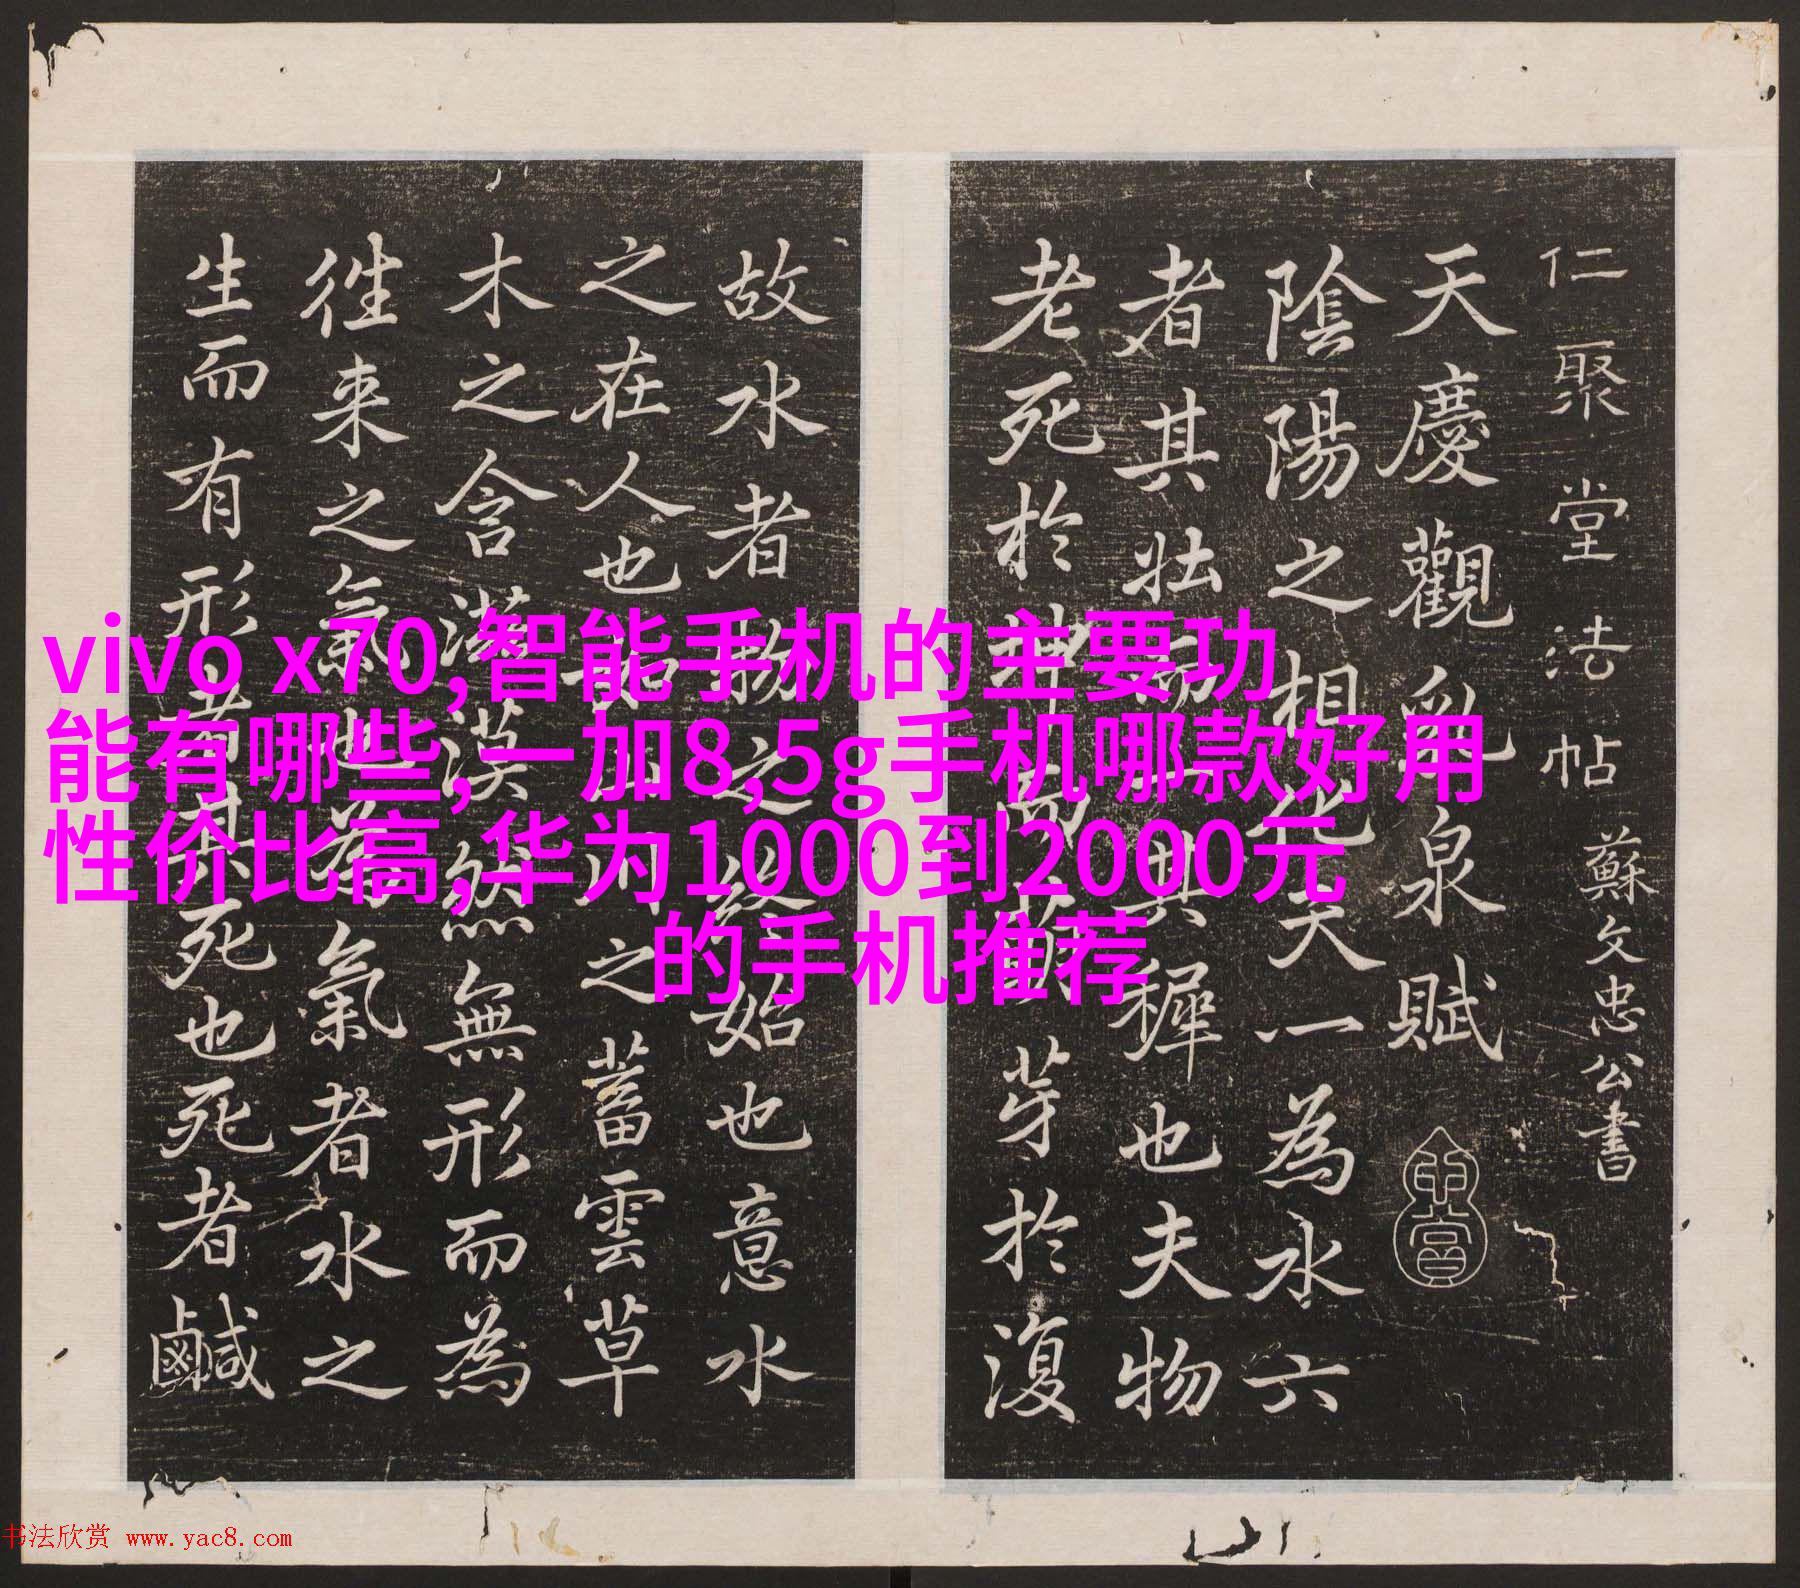 仁聚堂法帖 蘇文忠公書
天慶觀乳泉賦
陰陽之相化天一為水六
者其壯而其穉也夫物
老死於坤而萌芽於復
故水者物之終始也意水
之在人也 之蓄雲草
木之含漠然無形而為
徃来之氣也為氣者水之
生而有形者 死也死者鹹
vivo x70,智能手机的主要功
能有哪些,一加8,5g手机哪款好用
性价比高,华为1000到2000元
的手机推荐
书法欣赏 www.yac8.com